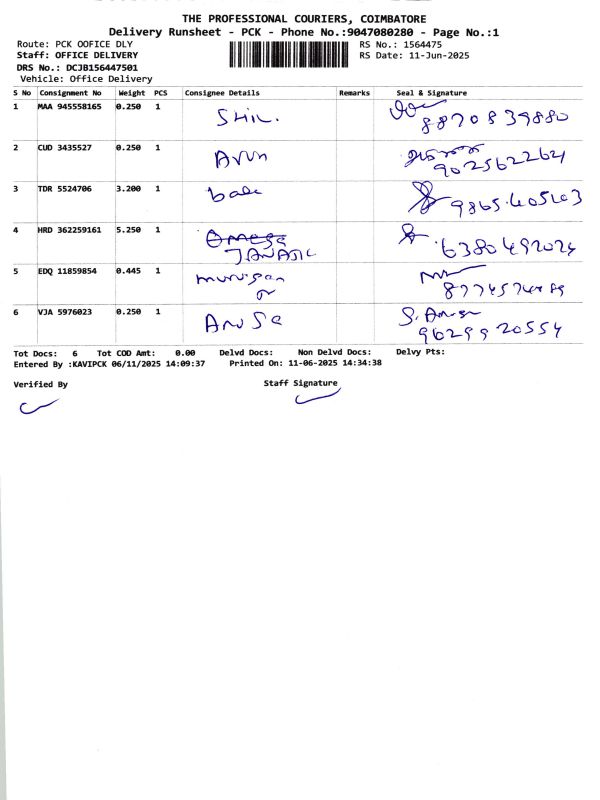 THE PROFESSIONAL COURIERS, COIMBATORE
Delivery Runsheet - PCK - Phone No.:9047080280 - Page No.:1
Route: PCK OOFICE DLY RS No.: 1564475
Staff: OFFICE DELIVERY RS Date: 11-Jun-2025
DRS No.: DCJB156447501
Vehicle: Office Delivery
S No Consignment No Weight PCS Consignee Details Remarks Seal & Signature
1 MAA 945558165 0.250 1
8870839880
2 CUD 3435527 0.250 1 Arun
9025622624
3 TDR 5524706 3.200 1 bala
4 HRD 362259161 5.250 1 Omega
6380492024
5 EDQ 11859854 0.445 1 murugan
6 VJA 5976023 0.250 1
9629920554
Tot Docs: 6 Tot COD Amt: 0.00 Delvd Docs: Non Delvd Docs: Delvy Pts:
Entered By :KAVIPCK 06/11/2025 14:09:37 Printed On: 11-06-2025 14:34:38
Verified By Staff Signature